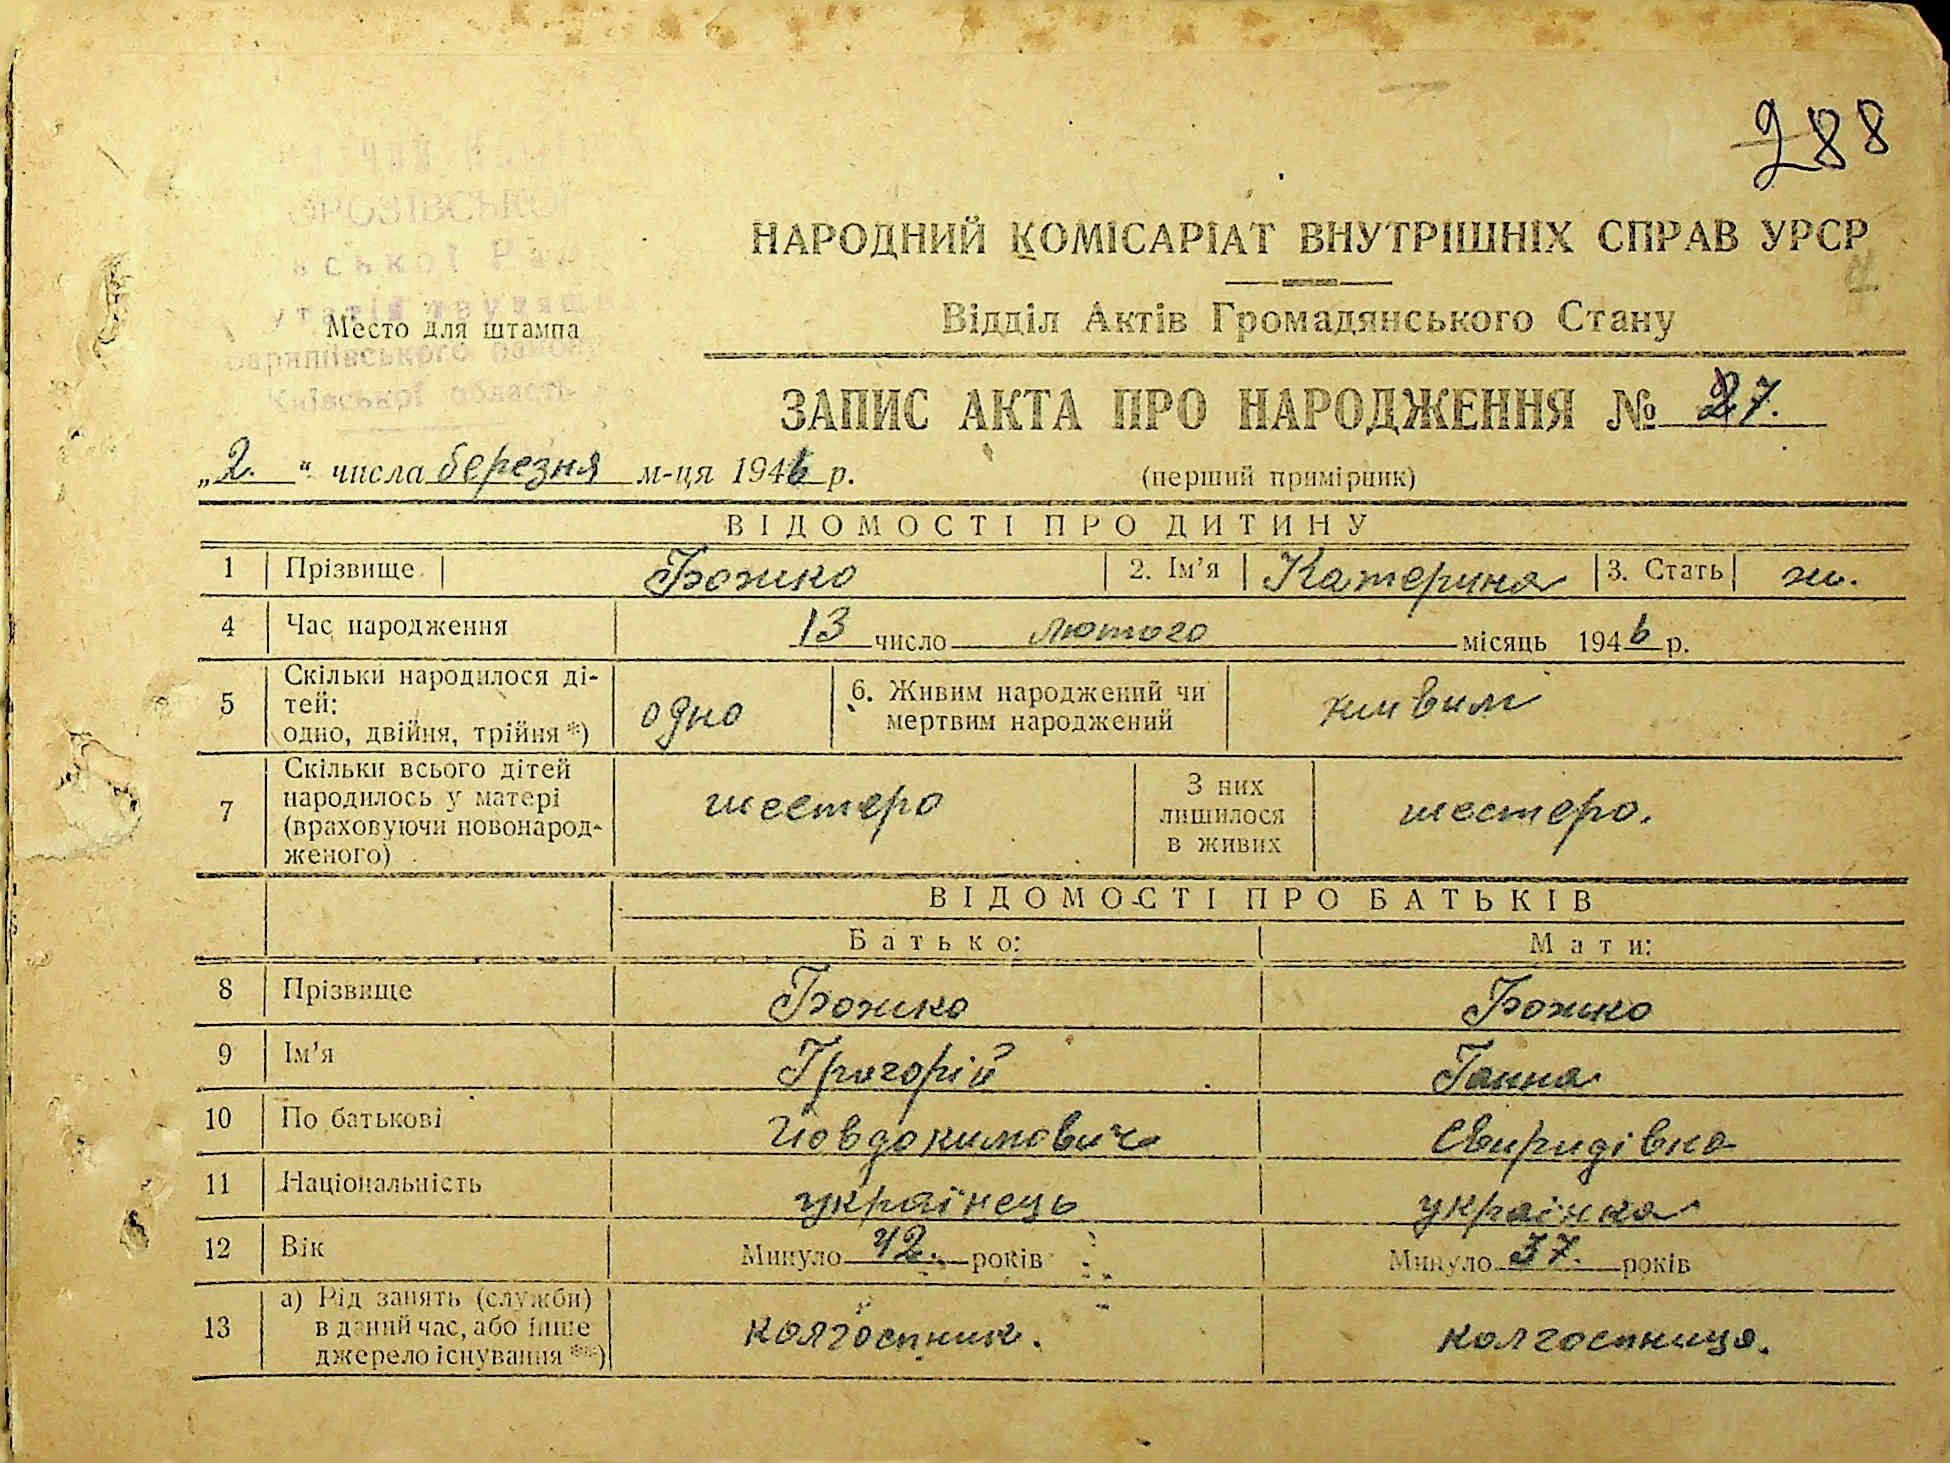 288
НАРОДНИЙ КОМІСАРІАТ ВНУТРІШНІХ СПРАВ УРСР
Відділ Актів Громадянського Стану
Место для штампа
Київської області
ЗАПИС АКТА ПРО НАРОДЖЕННЯ № 27.
„2.“ числа березня м-ця 1946 р.
(перший примірник)
ВІДОМОСТІ ПРО ДИТИНУ
1 Прізвище Божко 2. Ім'я Катерина 3. Стать ж.
4 Час народження 13 число лютого місяць 1946 р.
5 Скільки народилося ді-
тей:
одно, двійня, трійня *) одно
6. Живим народжений чи
мертвим народжений живим
7 Скільки всього дітей
народилось у матері
(враховуючи новонарод-
женого) шестеро
З них
лишилося
в живих шестеро.
ВІДОМОСТІ ПРО БАТЬКІВ
Батько: Мати:
8 Прізвище Божко Божко
9 Ім'я Григорій Ганна
10 По батькові Йовдокимович Свиридівна
11 Національність українець українка
12 Вік Минуло 42. років Минуло 37. років
13 а) Рід занять (служби)
в даний час, або інше
джерело існування **) колгоспник. колгоспниця.